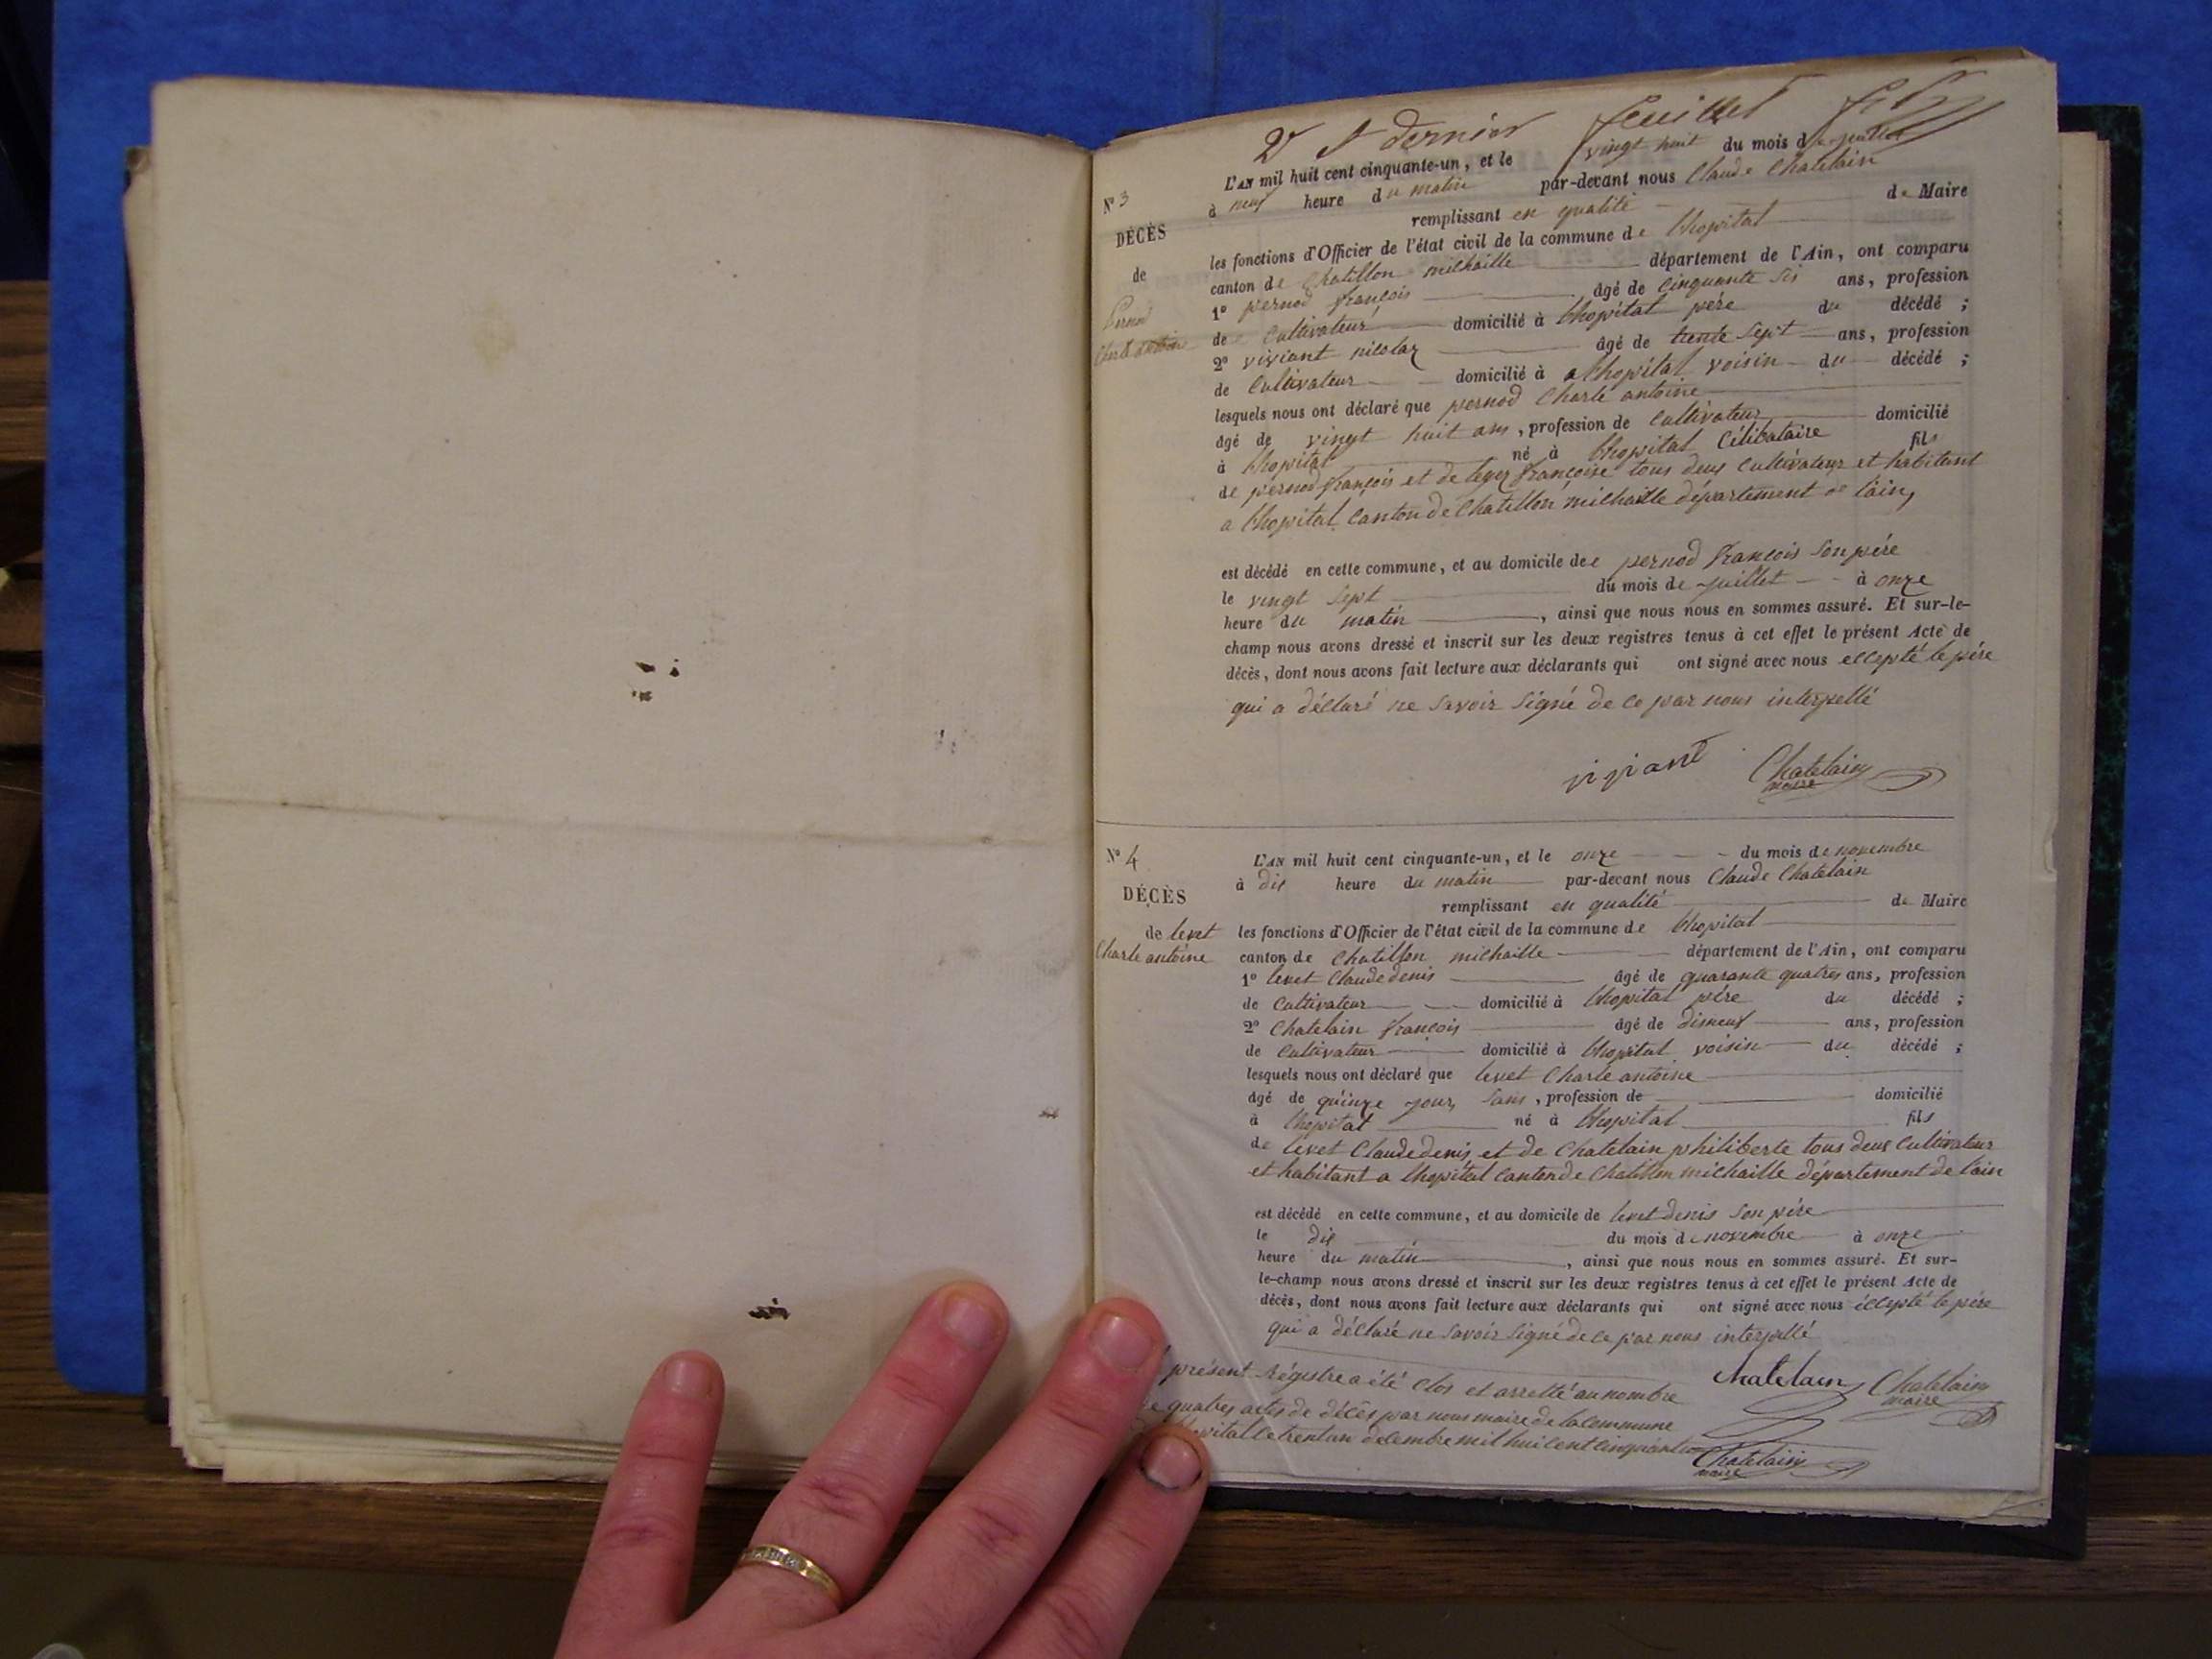 2e et dernier feuillet
N° 3
DÉCÈS
de
Pernod
Charle antoine
L'AN mil huit cent cinquante-un, et le vingt huit du mois de juillet
à neuf heure du matin par-devant nous Claude Chatelain
remplissant en qualité de Maire
les fonctions d'Officier de l'état civil de la commune de lhopital
canton de Chatillon michaille département de l'Ain, ont comparu
1° pernod françois âgé de cinquante sis ans, profession
de cultivateur domicilié à lhopital père du décédé ;
2° viviant nicolas âgé de trente sept ans, profession
de cultivateur domicilié à a lhopital voisin du décédé ;
lesquels nous ont déclaré que pernod Charle antoine
âgé de vingt huit ans, profession de cultivateur domicilié
à lhopital né à lhopital Célibataire fils
de pernod françois et de françoise tous deux cultivateur et habitant
a lhopital canton de Chatillon michaille département de lain,
est décédé en cette commune, et au domicile de pernod françois son père
le vingt sept du mois de juillet à onze
heure du matin, ainsi que nous nous en sommes assuré. Et sur-le-
champ nous avons dressé et inscrit sur les deux registres tenus à cet effet le présent Acte de
décès, dont nous avons fait lecture aux déclarants qui ont signé avec nous ellepté le père
qui a déclaré ne savoir signé de ce par nous interpellé
viviant Chatelain
maire
N° 4
DÉCÈS
de levet
Charle antoine
L'AN mil huit cent cinquante-un, et le onze du mois de novembre
à dis heure du matin par-devant nous Claude Chatelain
remplissant en qualité de Maire
les fonctions d'Officier de l'état civil de la commune de lhopital
canton de Chatillon michaille département de l'Ain, ont comparu
1° levet Claude denis âgé de quarante quatres ans, profession
de cultivateur domicilié à lhopital père du décédé ;
2° Chatelain françois âgé de disneuf ans, profession
de cultivateur domicilié à lhopital voisin du décédé ;
lesquels nous ont déclaré que levet Charle antoine
âgé de quinze jours sans, profession de domicilié
à lhopital né à lhopital fils
de levet Claude denis et de Chatelain philiberte tous deux cultivateur
et habitant a lhopital canton de Chatillon michaille département de lain
est décédé en cette commune, et au domicile de levet denis son père
le dis du mois de novembre à onze
heure du matin, ainsi que nous nous en sommes assuré. Et sur-
le-champ nous avons dressé et inscrit sur les deux registres tenus à cet effet le présent Acte de
décès, dont nous avons fait lecture aux déclarants qui ont signé avec nous éllepté le père
qui a déclaré ne savoir signé de ce par nous interpellé
Chatelain Chatelain
maire
présent régistre a été clos et arretté au nombre
de quatres actes de décès par nous maire de la commune
lhopital le trentun décembre mil huit cent cinquante un
Chatelain
maire